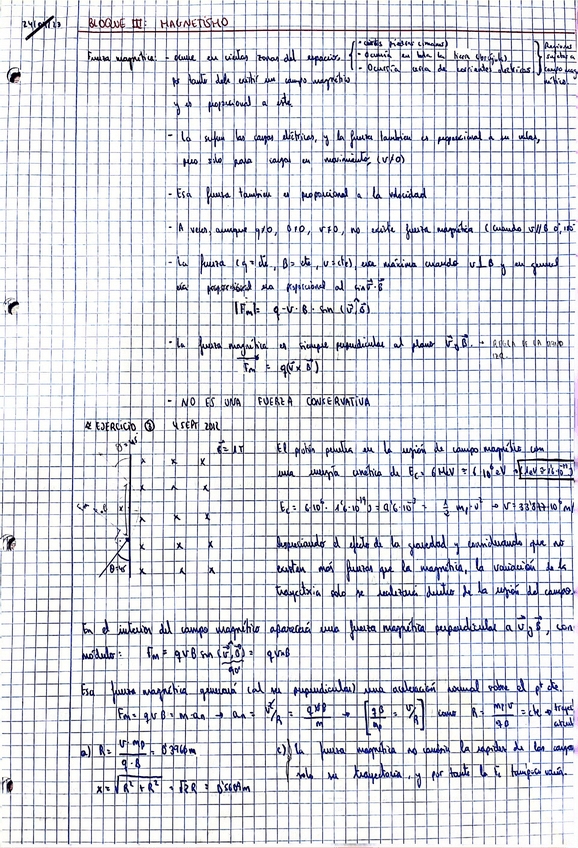 24/  /23 BLOQUE III: MAGNETISMO
Fuerza magnética: - ocurre en ciertas zonas del espacio, - ciertas piedras (imanes)
- Ocurriría en toda la tierra (brújula)
- Ocurría cerca de corrientes eléctricas
Regiones sujetas a campo magnético.
por tanto debe existir un campo magnético
y es proporcional a este
- La sufren las cargas eléctricas, y la fuerza también es proporcional a su valor,
pero solo para cargas en movimiento, (v≠0)
- Esa fuerza también es proporcional a la velocidad
- A veces, aunque q≠0, B≠0, v≠0, no existe fuerza magnética (cuando v//B 0º, 180º
- La fuerza (q = cte, B = cte, v = cte), era máxima cuando v⊥B y en general
era proporcional al sin v·B
|Fm| = q·v·B·sin (v,B)
- La fuerza magnética es siempre perpendicular al plano v y B. → REGLA DE LA MANO IZQ.
Fm = q(v x B)
- NO ES UNA FUERZA CONSERVATIVA
* EJERCICIO ① 4 SEPT 2012
θ=45º
B = 1T El protón penetra en la región de campo magnético con
x x x
una energía cinética de Ec = 6 MeV = 6·10⁶ eV → (1eV = 1'6·10⁻¹⁹)
x x x
Ec = 6·10⁶ · 1'6·10⁻¹⁹ = 9'6·10⁻¹³ = 1/2 mp·v² → v = 33'877·10⁶ m/
x x x
Despreciando el efecto de la gravedad y considerando que no
existen más fuerzas que la magnética, la variación de la
θ=45 x x x
trayectoria solo se realizará dentro de la región del campo.
En el interior del campo magnético aparecerá una fuerza magnética perpendicular a v y B, con
módulo: Fm = qvB sin (v,B) = qvB
90º
Esa fuerza magnética generará (al ser perpendicular) una aceleración normal sobre el p⁺ cte.
Fm = qvB = m·an → an = v²/R = qvB/m → [qB/mp = v/R] como R = mp·v/qB = cte → trayect circul
a) R = v·mp/q·B = 0'3960m
c) La fuerza magnética no cambia la rapidez de las cargas
x = √R² + R² = √2R = 0'5601m
solo su trayectoria, y por tanto la Ec tampoco varía.